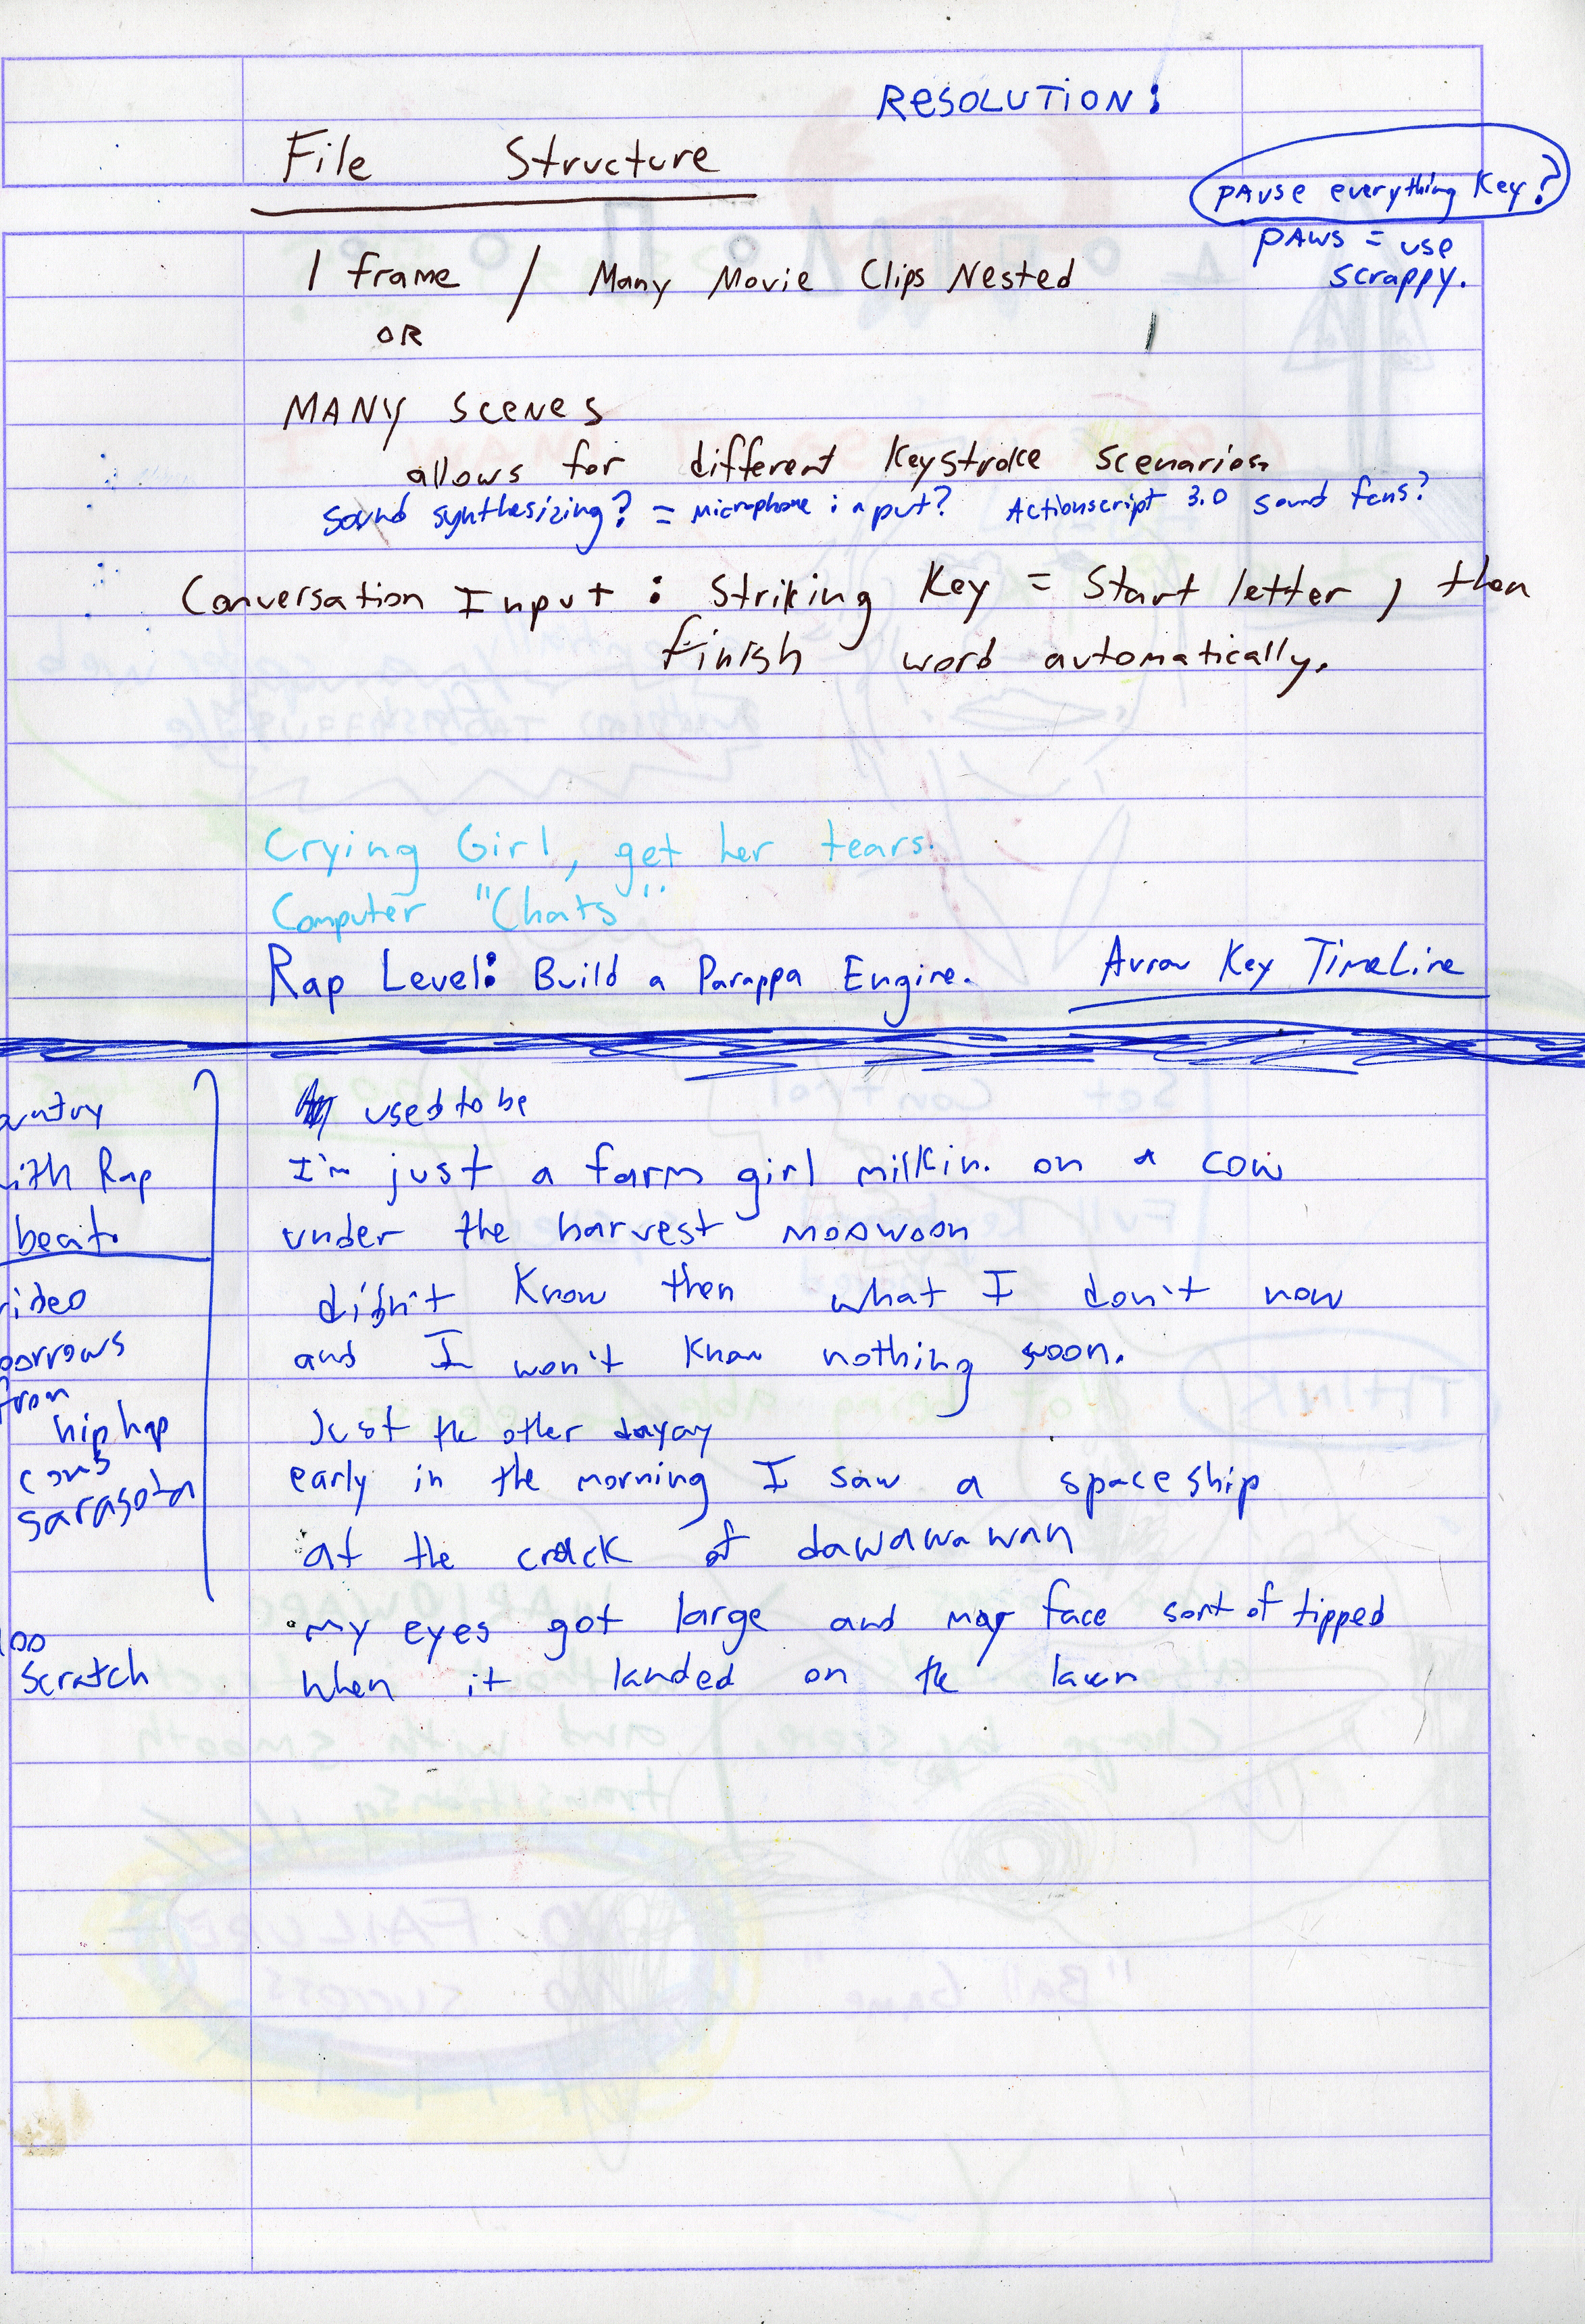 RESOLUTION:
File Structure
pause everything key?
paws = use
scrappy.
1 frame / Many Movie Clips Nested
OR
MANY SCENES
allows for different keystroke scenarios.
sound synthesizing? = microphone input? Actionscript 3.0 sound fcns?
Conversation Input: Striking Key = Start letter, then
finish word automatically.
Crying Girl, get her tears.
Computer "Chats".
Rap Level: Build a Parappa Engine. Arrow Key TimeLine
used to be
I'm just a farm girl milkin. on a cow
under the harvest moowoon
didn't know then what I don't now
and I won't know nothing soon.
Just the other dayay
early in the morning I saw a spaceship
at the crack of dawawawan
my eyes got large and my face sort of tipped
when it landed on the lawn
untry
ith Rap
beat.
ideo
borrows
from
hip hop
cons
sarasota
Scratch